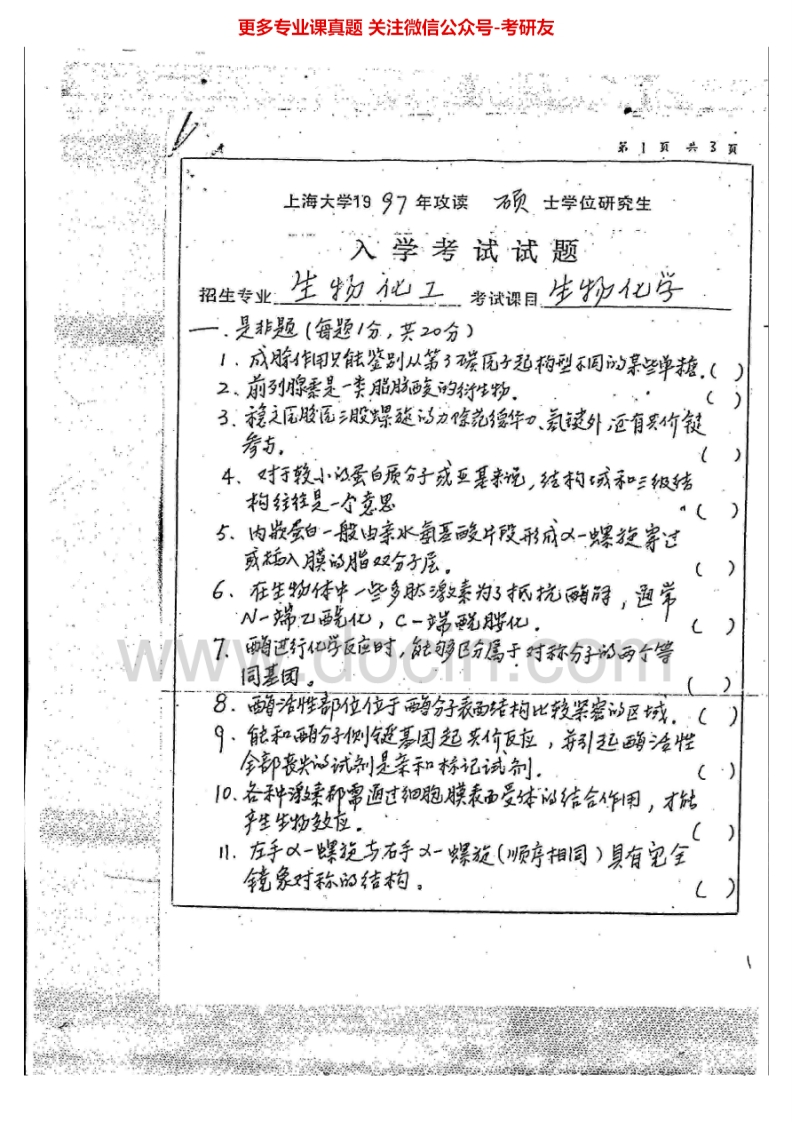 更多专业课真题 关注微信公众号-考研友
第 1 页 共 3 页
上海大学1997年攻读 硕 士学位研究生
入学考试试题
招生专业 生物化工 考试课目 生物化学
一.是非题(每题1分,共20分)
1. 成脎作用只能鉴别从第3碳原子起构型不同的某些单糖.( )
2. 前列腺素是一类脂肪酸的衍生物. ( )
3. 稳定胶原三股螺旋的力除范德华力、氢键外,还有共价键
参与. ( )
4. 对于较小的蛋白质分子或亚基来说,结构域和三级结
构往往是一个意思 ( )
5. 内嵌蛋白一般由亲水氨基酸片段形成α-螺旋穿过
或插入膜的脂双分子层. ( )
6. 在生物体中一些多肽激素为了抵抗酶解,通常
N-端乙酰化,C-端酰胺化. ( )
7. 酶进行化学反应时,能够区分属于对称分子的两个等
同基团。 ( )
8. 酶活性部位位于酶分子表面结构比较紧密的区域. ( )
9. 能和酶分子侧链基团起共价反应,并引起酶活性
全部丧失的试剂是亲和标记试剂. ( )
10. 各种激素都需通过细胞膜表面受体的结合作用,才能
产生生物效应. ( )
11. 左手α-螺旋与右手α-螺旋(顺序相同)具有完全
镜象对称的结构。 ( )
www.docin.com
1